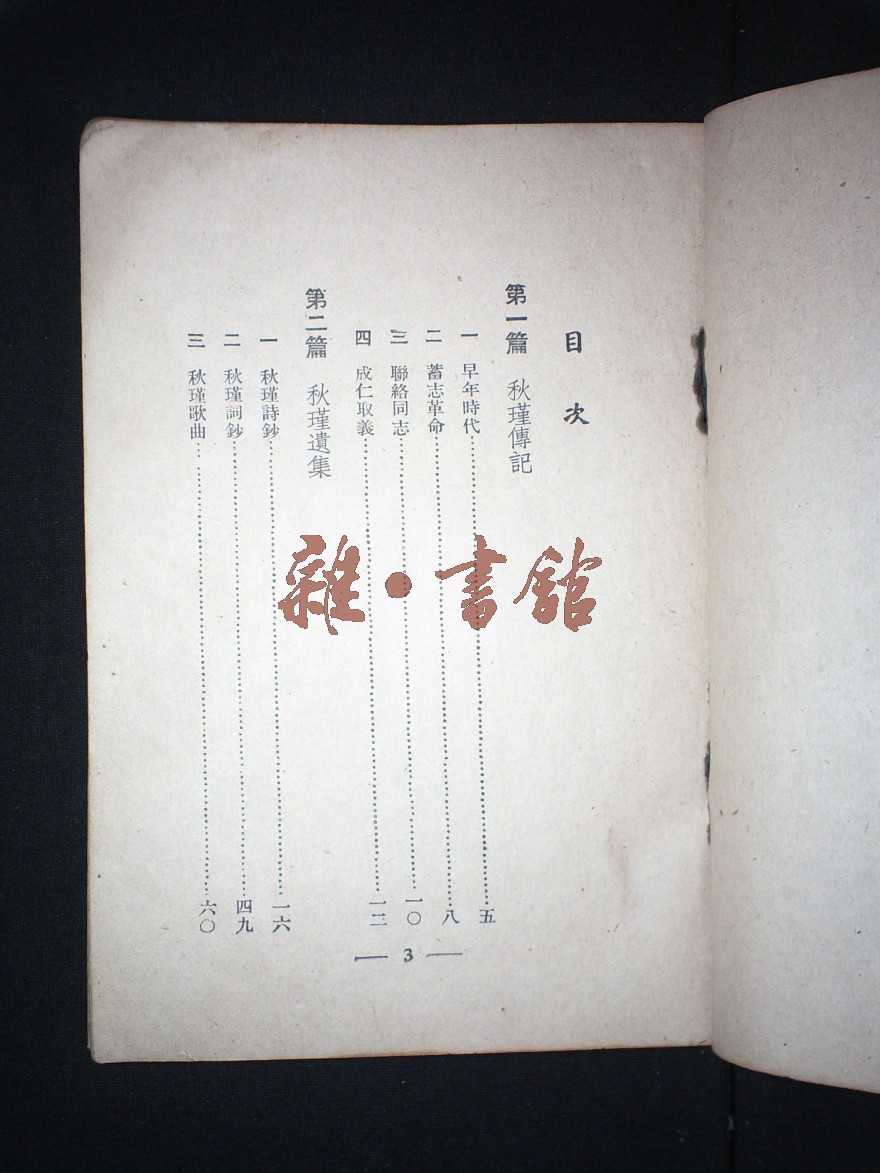 目次
第一篇 秋瑾傳記
一 早年時代……五
二 蓄志革命……八
三 聯絡同志……一〇
四 成仁取義……一二
第二篇 秋瑾遺集
一 秋瑾詩鈔……一六
二 秋瑾詞鈔……四九
三 秋瑾歌曲……六〇
— 3 —
雜·書館